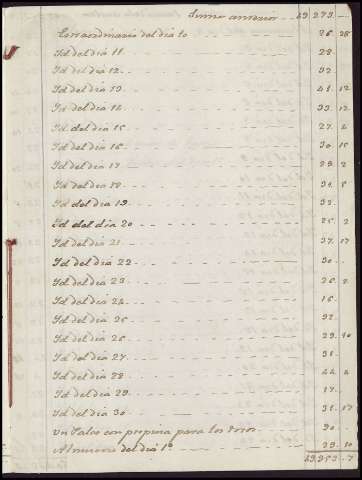 Suma anterior 49 273
Extraordinario del dia 10 26 28
Id del dia 11 28
Id del dia 12 32
Id del dia 13 41 12
Id del dia 14 33 12
Id del dia 15 27 2
Id del dia 16 30 15
Id del dia 17 29 2
Id del dia 18 31 8
Id del dia 19 33
Id del dia 20 25 2
Id del dia 21 37 17
Id del dia 22 30
Id del dia 23 26 2
Id del dia 24 16
Id del dia 25 32
Id del dia 26 29 10
Id del dia 27 31
Id del dia 28 44 2
Id del dia 29 17
Id del dia 30 31 17
Un Palco con propina para los 30
Almuerzo del dia 1º 29 10
49,953 7